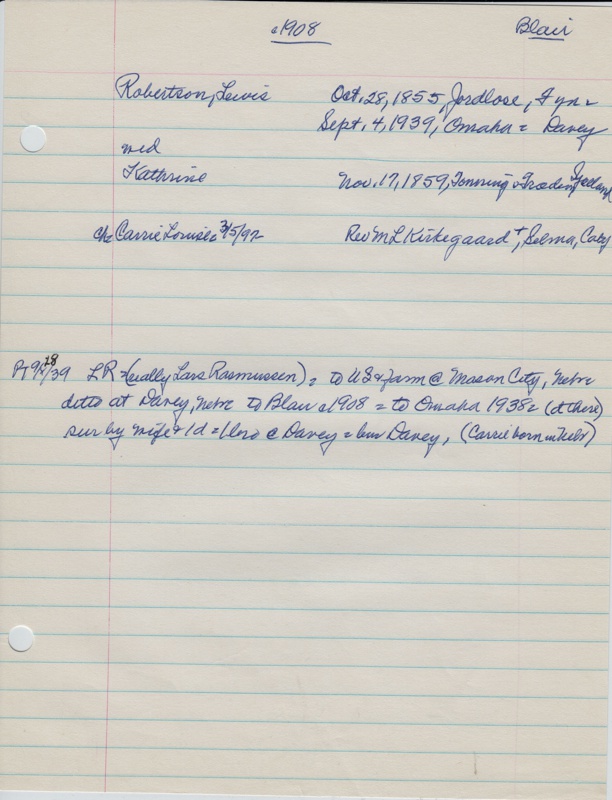 c1908 Blair
Robertson, Lewis Oct. 28, 1855, Jordlose, Fyn =
Sept. 4, 1939, Omaha = Davey
md
Kathrine Nov. 17, 1859, Tonning Jylland
ch: Carrie Louise 3/5/92 Rev M L Kirkegaard +, Selma, Caly
9/28/39 LR = (really Lars Rasmussen) = to US & farm @ Mason City, Nebr
ditto at Davey, Nebr to Blair c1908 = to Omaha 1935 = (d there)
sur by wife & 1d = 1 bro @ Davey = bur Davey, (Carrie born in Nebr)